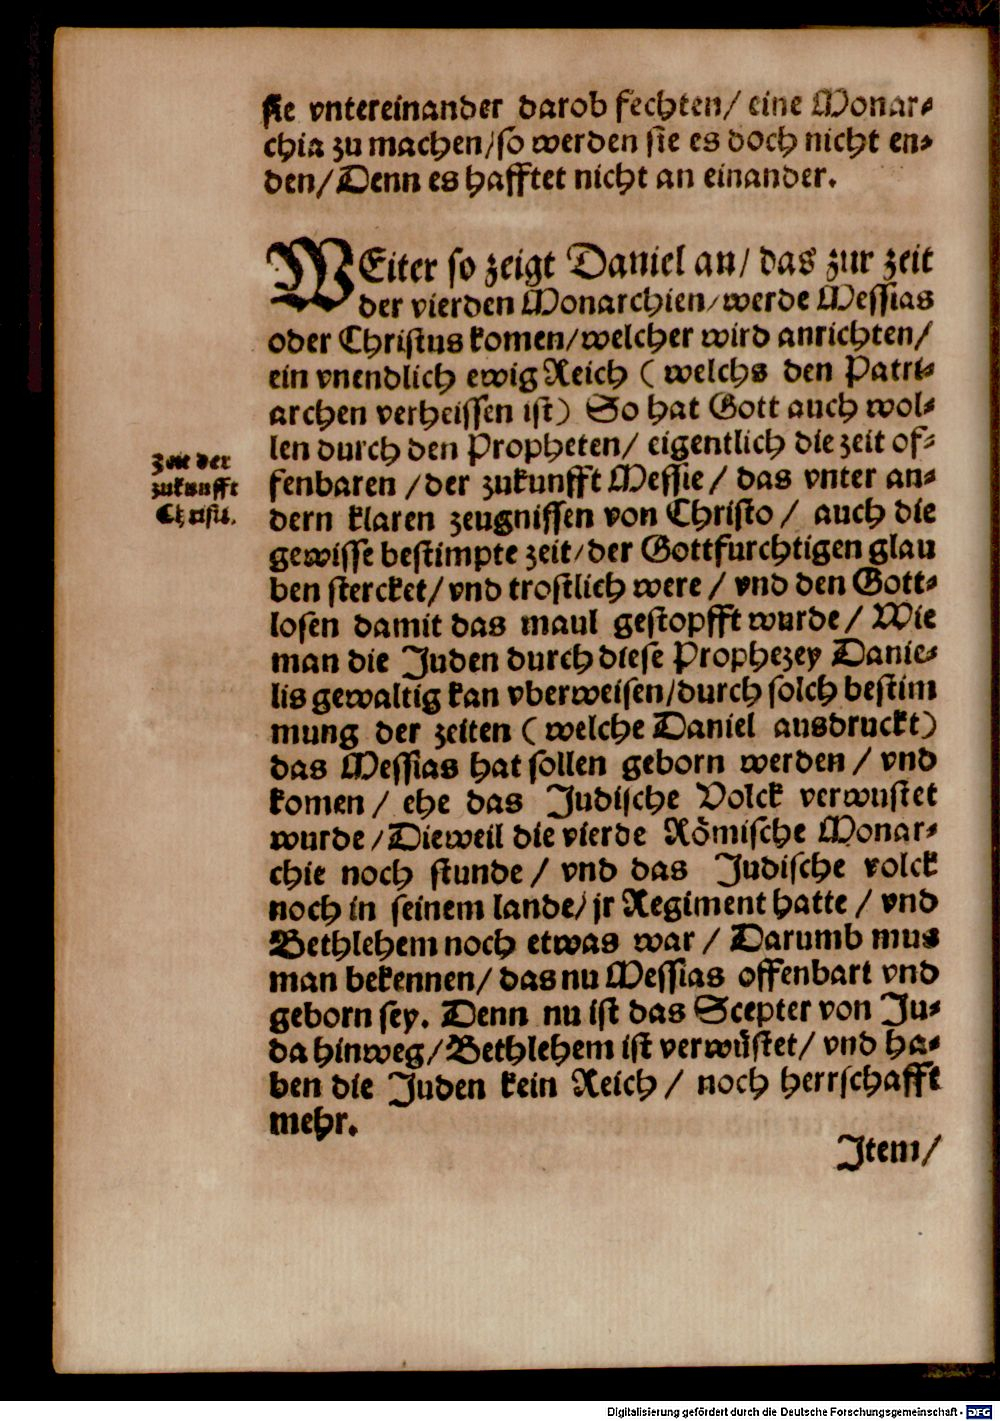 sie vntereinander darob fechten/ eine Monar⸗
chia zu machen/so werden sie es doch nicht en⸗
den/Denn es hafftet nicht an einander.
WEiter so zeigt Daniel an/ das zur zeit
der vierden Monarchien/werde Messias
oder Christus komen/welcher wird anrichten/
ein vnendlich ewig Reich ( welchs den Patri⸗
archen verheissen ist) So hat Gott auch wol⸗
len durch den Propheten/ eigentlich die zeit of⸗
Zeit der
zukunfft
Christi.
fenbaren /der zukunfft Messie/ das vnter an⸗
dern klaren zeugnissen von Christo/ auch die
gewisse bestimpte zeit/der Gottfurchtigen glau
ben stercket/vnd trostlich were / vnd den Gott⸗
losen damit das maul gestopfft wurde/ Wie
man die Juden durch diese Prophezey Danie⸗
lis gewaltig kan vberweisen/durch solch bestim
mung der zeiten ( welche Daniel ausdruckt)
das Messias hat sollen geborn werden / vnd
komen/ ehe das Judische Volck verwustet
wurde /Dieweil die vierde Römische Monar⸗
chie noch stunde / vnd das Judische volck
noch in seinem lande/ jr Regiment hatte / vnd
Bethlehem noch etwas war / Darumb mus
man bekennen/ das nu Messias offenbart vnd
geborn sey. Denn nu ist das Scepter von Ju⸗
da hinweg/Bethlehem ist verwüstet/ vnd ha⸗
ben die Juden kein Reich / noch herrschafft
mehr.
Item/
Digitalisierung gefördert durch die Deutsche Forschungsgemeinschaft - DFG